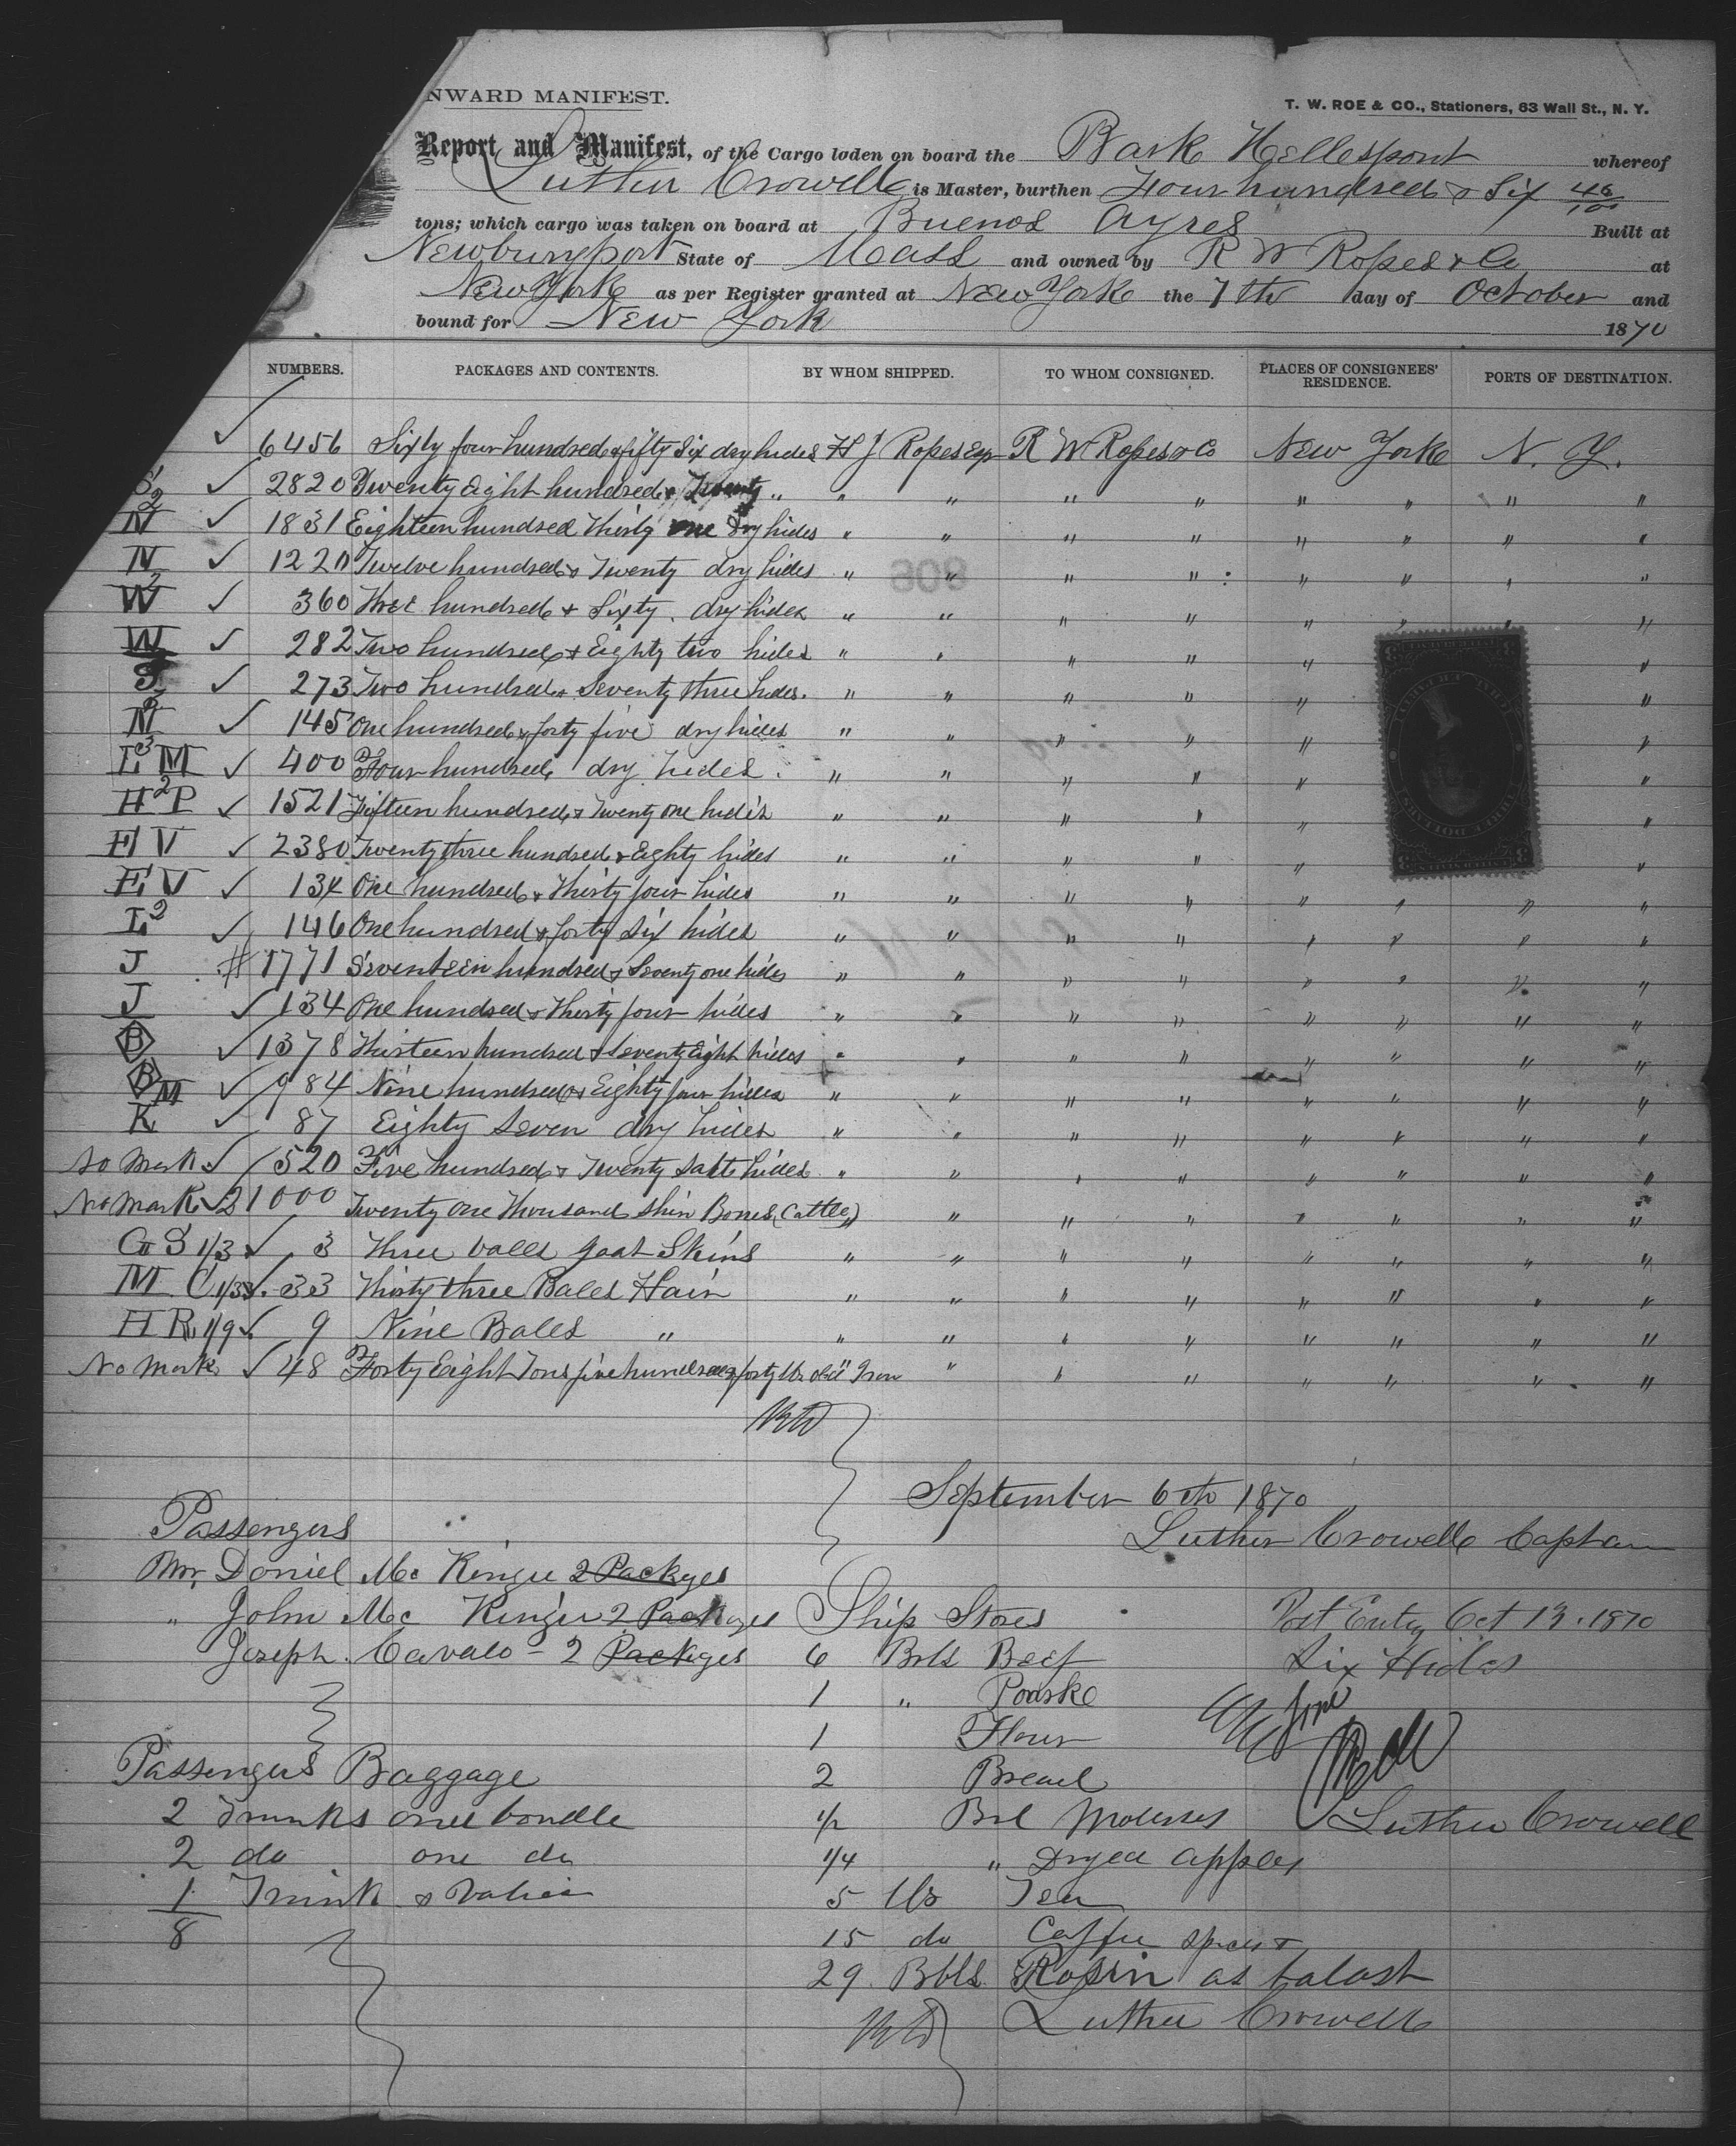 NWARD MANIFEST.
T. W. ROE & CO., Stationers, 63 Wall St., N. Y.
Report and Manifest, of the Cargo laden on board the Bark Hellespont whereof
Luther Crowell is Master, burthen Four hundred & Six 46/100
tons; which cargo was taken on board at Buenos Ayres Built at
Newburyport State of Mass and owned by R W Ropes & Co at
New York as per Register granted at New York the 7th day of October and
bound for New York 1870
NUMBERS. PACKAGES AND CONTENTS. BY WHOM SHIPPED. TO WHOM CONSIGNED. PLACES OF CONSIGNEES' RESIDENCE. PORTS OF DESTINATION.
6456 Sixty four hundred & fifty Six dry hides H J Ropes Esqr R W Ropes & Co New York N. Y.
S2 2820 Twenty Eight hundred & Twenty " " " " " " " " "
N 1831 Eighteen hundred Thirty one dry hides " " " " " " " "
N 1220 Twelve hundred & Twenty dry hides " " " " " " " "
W2 360 Three hundred & Sixty dry hides " " " " " " " "
W 282 Two hundred & Eighty two hides " " " " " "
S 273 Two hundred & Seventy three hides. " " " " " "
N2 145 One hundred & forty five dry hides " " " " " "
L3M 400 Four hundred dry hides. " " " " " "
H2P 1521 Fifteen hundred & Twenty one hides " " " " " "
FV 2380 Twenty three hundred & Eighty hides " " " " " "
FV 134 One hundred & Thirty four hides " " " " " " " "
L2 146 One hundred & forty six hides " " " " " " " "
J # 1771 Seventeen hundred & Seventy one hides " " " " " " " "
J 134 One hundred & Thirty four hides " " " " " " " "
B 1378 Thirteen hundred & Seventy Eight hides " " " " " " " "
B M 984 Nine hundred & Eighty four hides " " " " " " " "
K 87 Eighty Seven dry hides " " " " " " " "
No Mark 520 Five hundred & Twenty Salt hides " " " " " " " "
No Mark 21000 Twenty one Thousand Shin Bones (Cattle) " " " " " " " "
G S 1/3 3 Three bales goat Skins " " " " " " " "
M C 1/33 33 Thirty three Bales Hair " " " " " " " "
H R 1/9 9 Nine Bales " " " " " " " " "
No Mark 48 Forty Eight Tons five hundred & forty lbs old Iron " " " " " " "
September 6th 1870
Luther Crowell Captain
Passengers
Mr. Daniel Mc Kinzie 2 Packges
" John Mc Kinzie 2 Packages
Joseph Cavalo - 2 Packges
Ship Stores
6 Brls Beef
1 " Poarke
1 Flour
2 Bread
1/2 Brl Molesses
1/4 " Dryed apples
5 lbs Tea
15 do Coffee spices &
29 Bbls Rosin as balast
Luther Crowell
Post Entry Oct 13. 1870
Six Hides
Luther Crowell
Passengers Baggage
2 Trunks one bondle
2 do one do
1 Trunk & Valise
8